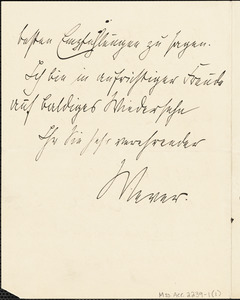 besten Empfehlungen zu sagen.
Ich bin in aufrichtiger Freude
auf baldiges Wiedersehn
Ihr Sie sehr verehrender
Meyer.
Mss Acc. 2239-1(1)